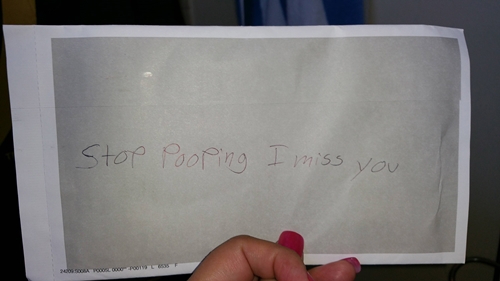 Stop Pooping I miss you